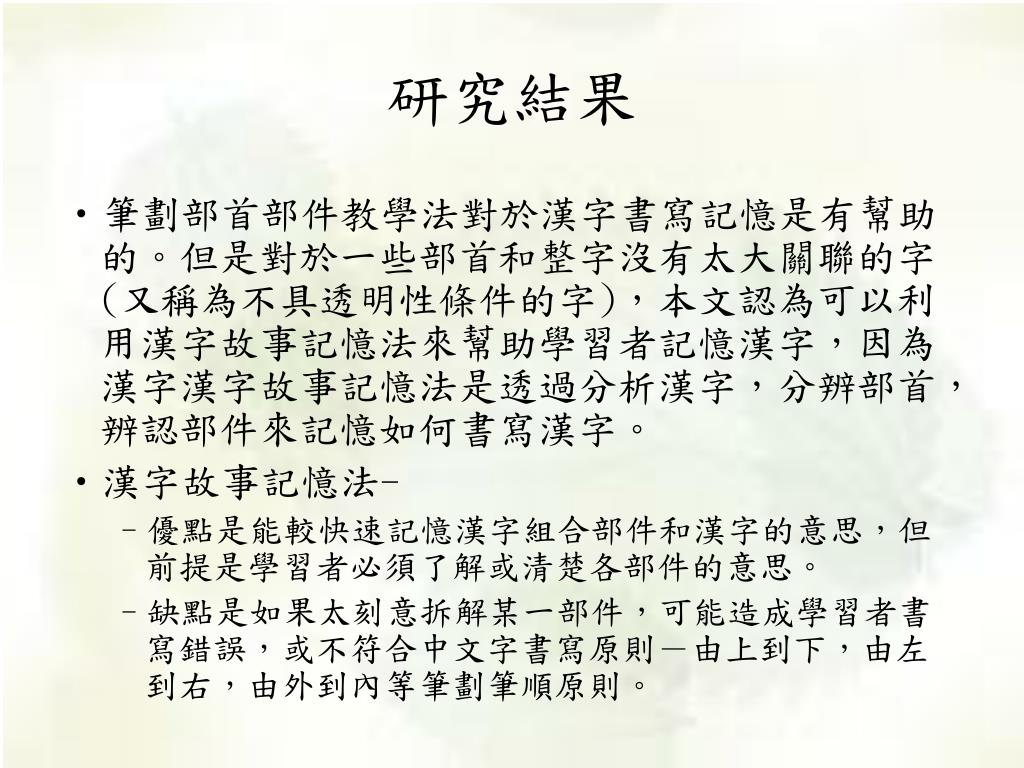 研究結果
•筆劃部首部件教學法對於漢字書寫記憶是有幫助
的。但是對於一些部首和整字沒有太大關聯的字
(又稱為不具透明性條件的字)，本文認為可以利
用漢字故事記憶法來幫助學習者記憶漢字，因為
漢字漢字故事記憶法是透過分析漢字，分辨部首，
辨認部件來記憶如何書寫漢字。
•漢字故事記憶法-
–優點是能較快速記憶漢字組合部件和漢字的意思，但
前提是學習者必須了解或清楚各部件的意思。
–缺點是如果太刻意拆解某一部件，可能造成學習者書
寫錯誤，或不符合中文字書寫原則－由上到下，由左
到右，由外到內等筆劃筆順原則。